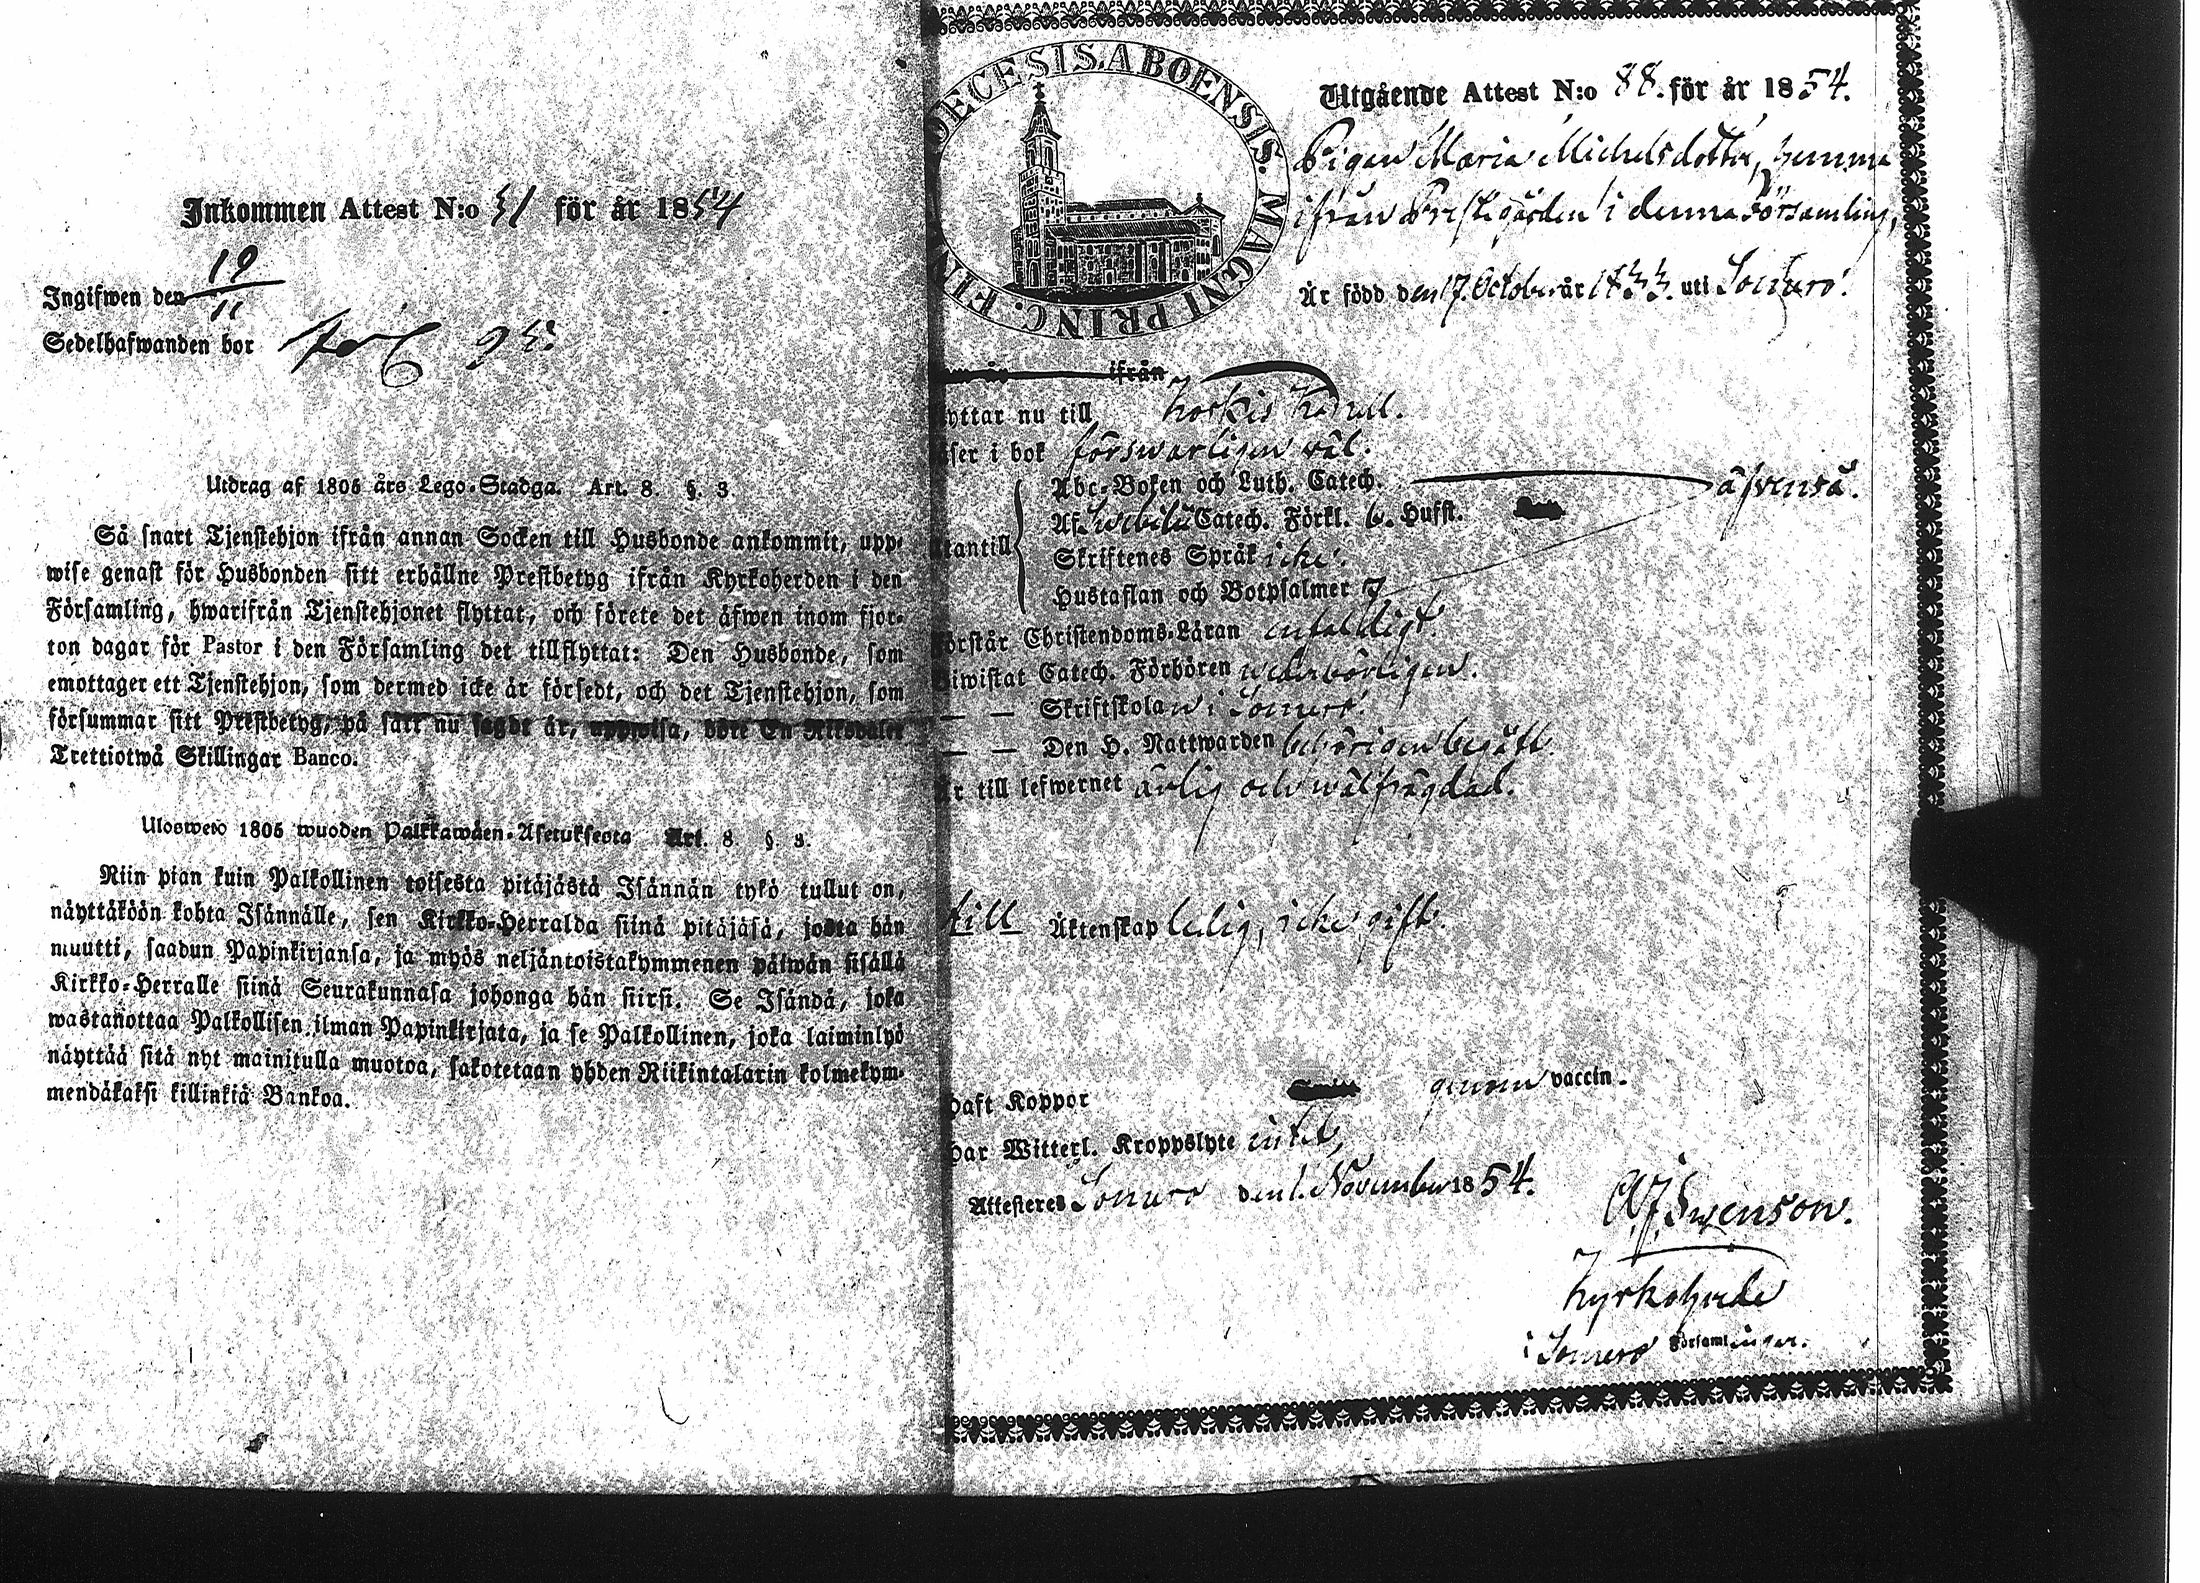 Inkommen Attest N:o 31 för år 1854
Ingifwen den 19/11
Sedelhafwanden bor
Utdrag af 1805 års Lego-Stadga. Art. 8. §. 3
Så snart Tjenstehjon ifrån annan Socken till Husbonde ankommit, upp-
wise genast för Husbonden sitt erhållne Prestbetyg ifrån Kyrkoherden i den
Församling, hwarifrån Tjenstehjonet flyttat, och förete det äfwen inom fjor-
ton dagar för Pastor i den Församling det tillflyttat: Den Husbonde, som
emottager ett Tjenstehjon, som dermed icke är försedt, och det Tjenstehjon, som
försummar sitt Prestbetyg, på sätt nu sagdt är, uppwisa, böte En Riksdaler
Trettiotwå Skillingar Banco.
Ulosweto 1805 wuoden Palkkawäen-Asetuksesta Art. 8 § 3.
Niin pian kuin Palkollinen toisesta pitäjästä Isännän tykö tullut on,
näyttäköön kohta Isännälle, sen Kirkko-Herralda siinä pitäjäsä, josta hän
muutti, saadun Papinkirjansa, ja myös neljäntoistakymmenen päiwän sisällä
Kirkko-Herralle siinä Seurakunnasa johonga hän siirsi. Se Isändä, joka
wastanottaa Palkollisen ilman Papinkirjata, ja se Palkollinen, joka laiminlyö
näyttää sitä nyt mainitulla muotoa, sakotetaan yhden Riikintalarin kolmekym-
mendäkaksi killinkiä Bankoa.
ECESIS. ABOENSIS. MAGNI PRINC. FIN
Utgående Attest N:o 88. för år 1854.
Pigan Maria Michelsdotter, hemma
ifrån Prestegården i denna Församling,
Är född den 17. October år 1833. uti Somero.
ifrån
yttar nu till Kapell.
ser i bok förswarligen wäl.
Abc-Boken och Luth. Catech. äfvenså.
Af Swebilii Catech. Förkl. 6. Hufst.
tantill Skriftenes Språk icke.
Hustaflan och Botpsalmer
örstår Christendoms-Läran enfaldigt.
iwistat Catech. Förhören wederbörligen.
— — Skriftskolan i Somero.
— — Den H. Nattwarden behörigen begått.
r till lefwernet ärlig och wälfrägdad.
till Äktenskap ledig, icke gift.
haft Koppor genom vaccin.
har Witterl. Kroppslyte intet,
Attesteres Somero den 1. November 1854.
A.J. Swenson.
Kyrkoherde
i Somero Församlingar.